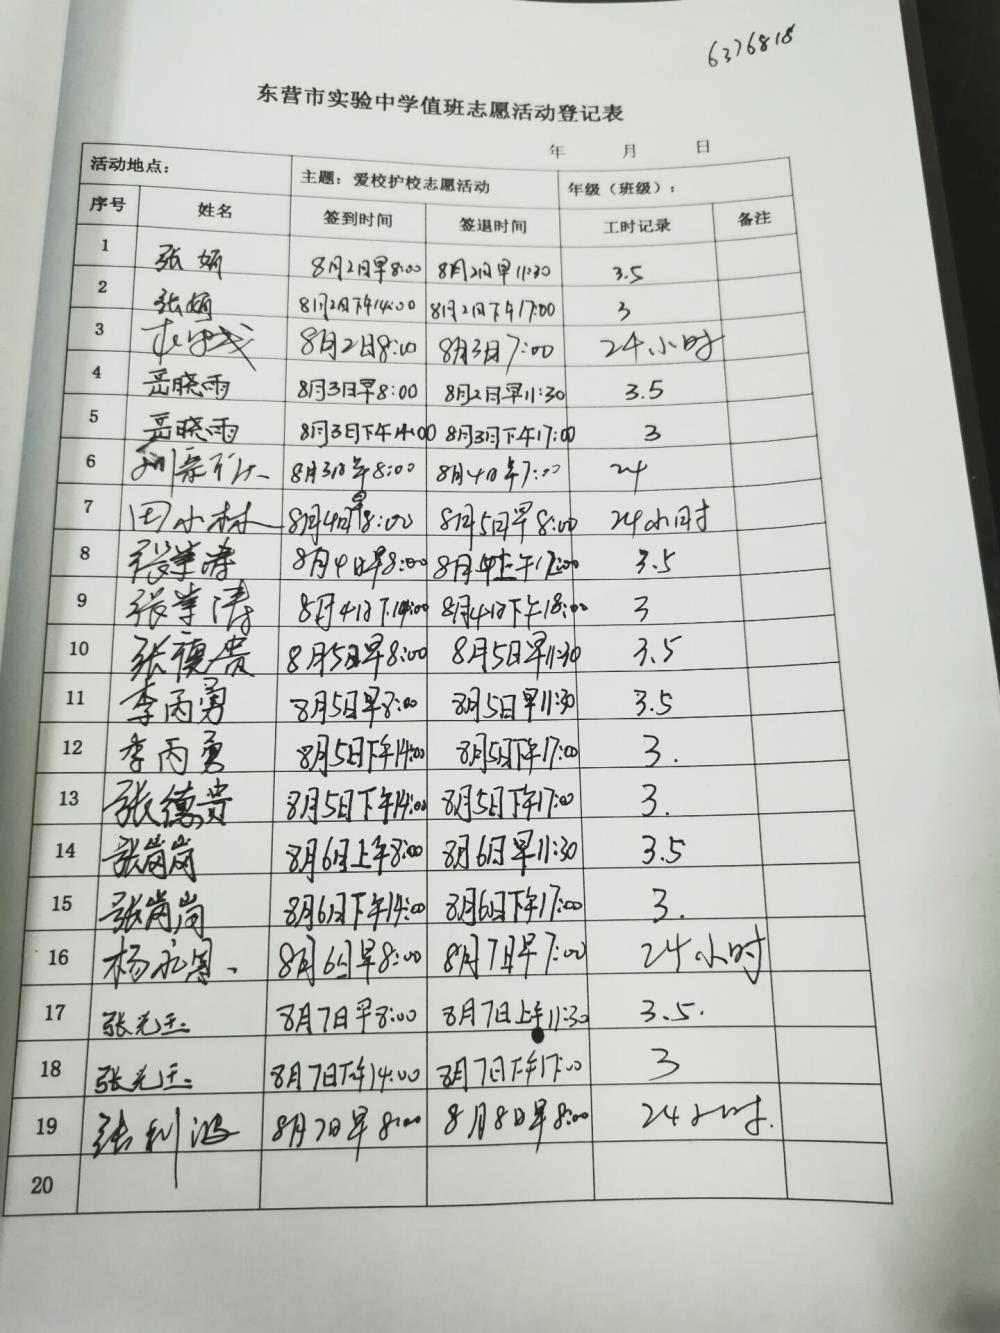 6376818
东营市实验中学值班志愿活动登记表
年 月 日
活动地点: 主题: 爱校护校志愿活动 年级（班级）:
序号 姓名 签到时间 签退时间 工时记录 备注
1 张娟 8月2日早8:00 8月2日早11:30 3.5
2 张娟 8月2日下午14:00 8月2日下午17:00 3
3 8月2日8:00 8月3日7:00 24小时
4 岳晓雨 8月3日早8:00 8月2日早11:30 3.5
5 岳晓雨 8月3日下午14:00 8月3日下午17:00 3
6 8月3日早8:00 8月4日早7:00 24
7 田小林 8月4日早8:00 8月5日早8:00 24小时
8 8月4日早8:00 8月4日上午 3.5
9 8月4日下14:00 8月4日下午18:00 3
10 张德贵 8月5日早8:00 8月5日早11:30 3.5
11 李丙勇 8月5日早8:00 8月5日早11:30 3.5
12 李丙勇 8月5日下午14:00 8月5日下午17:00 3.
13 张德贵 8月5日下午14:00 8月5日下午17:00 3.
14 张岗岗 8月6日上午8:00 8月6日早11:30 3.5
15 张岗岗 8月6日下午14:00 8月6日下午17:00 3.
16 8月6日早8:00 8月7日早7:00 24小时
17 张光玉 8月7日早8:00 8月7日上午11:30 3.5.
18 张光玉 8月7日下午14:00 8月7日下午17:00 3
19 张利波 8月7日早8:00 8月8日早8:00 24小时.
20